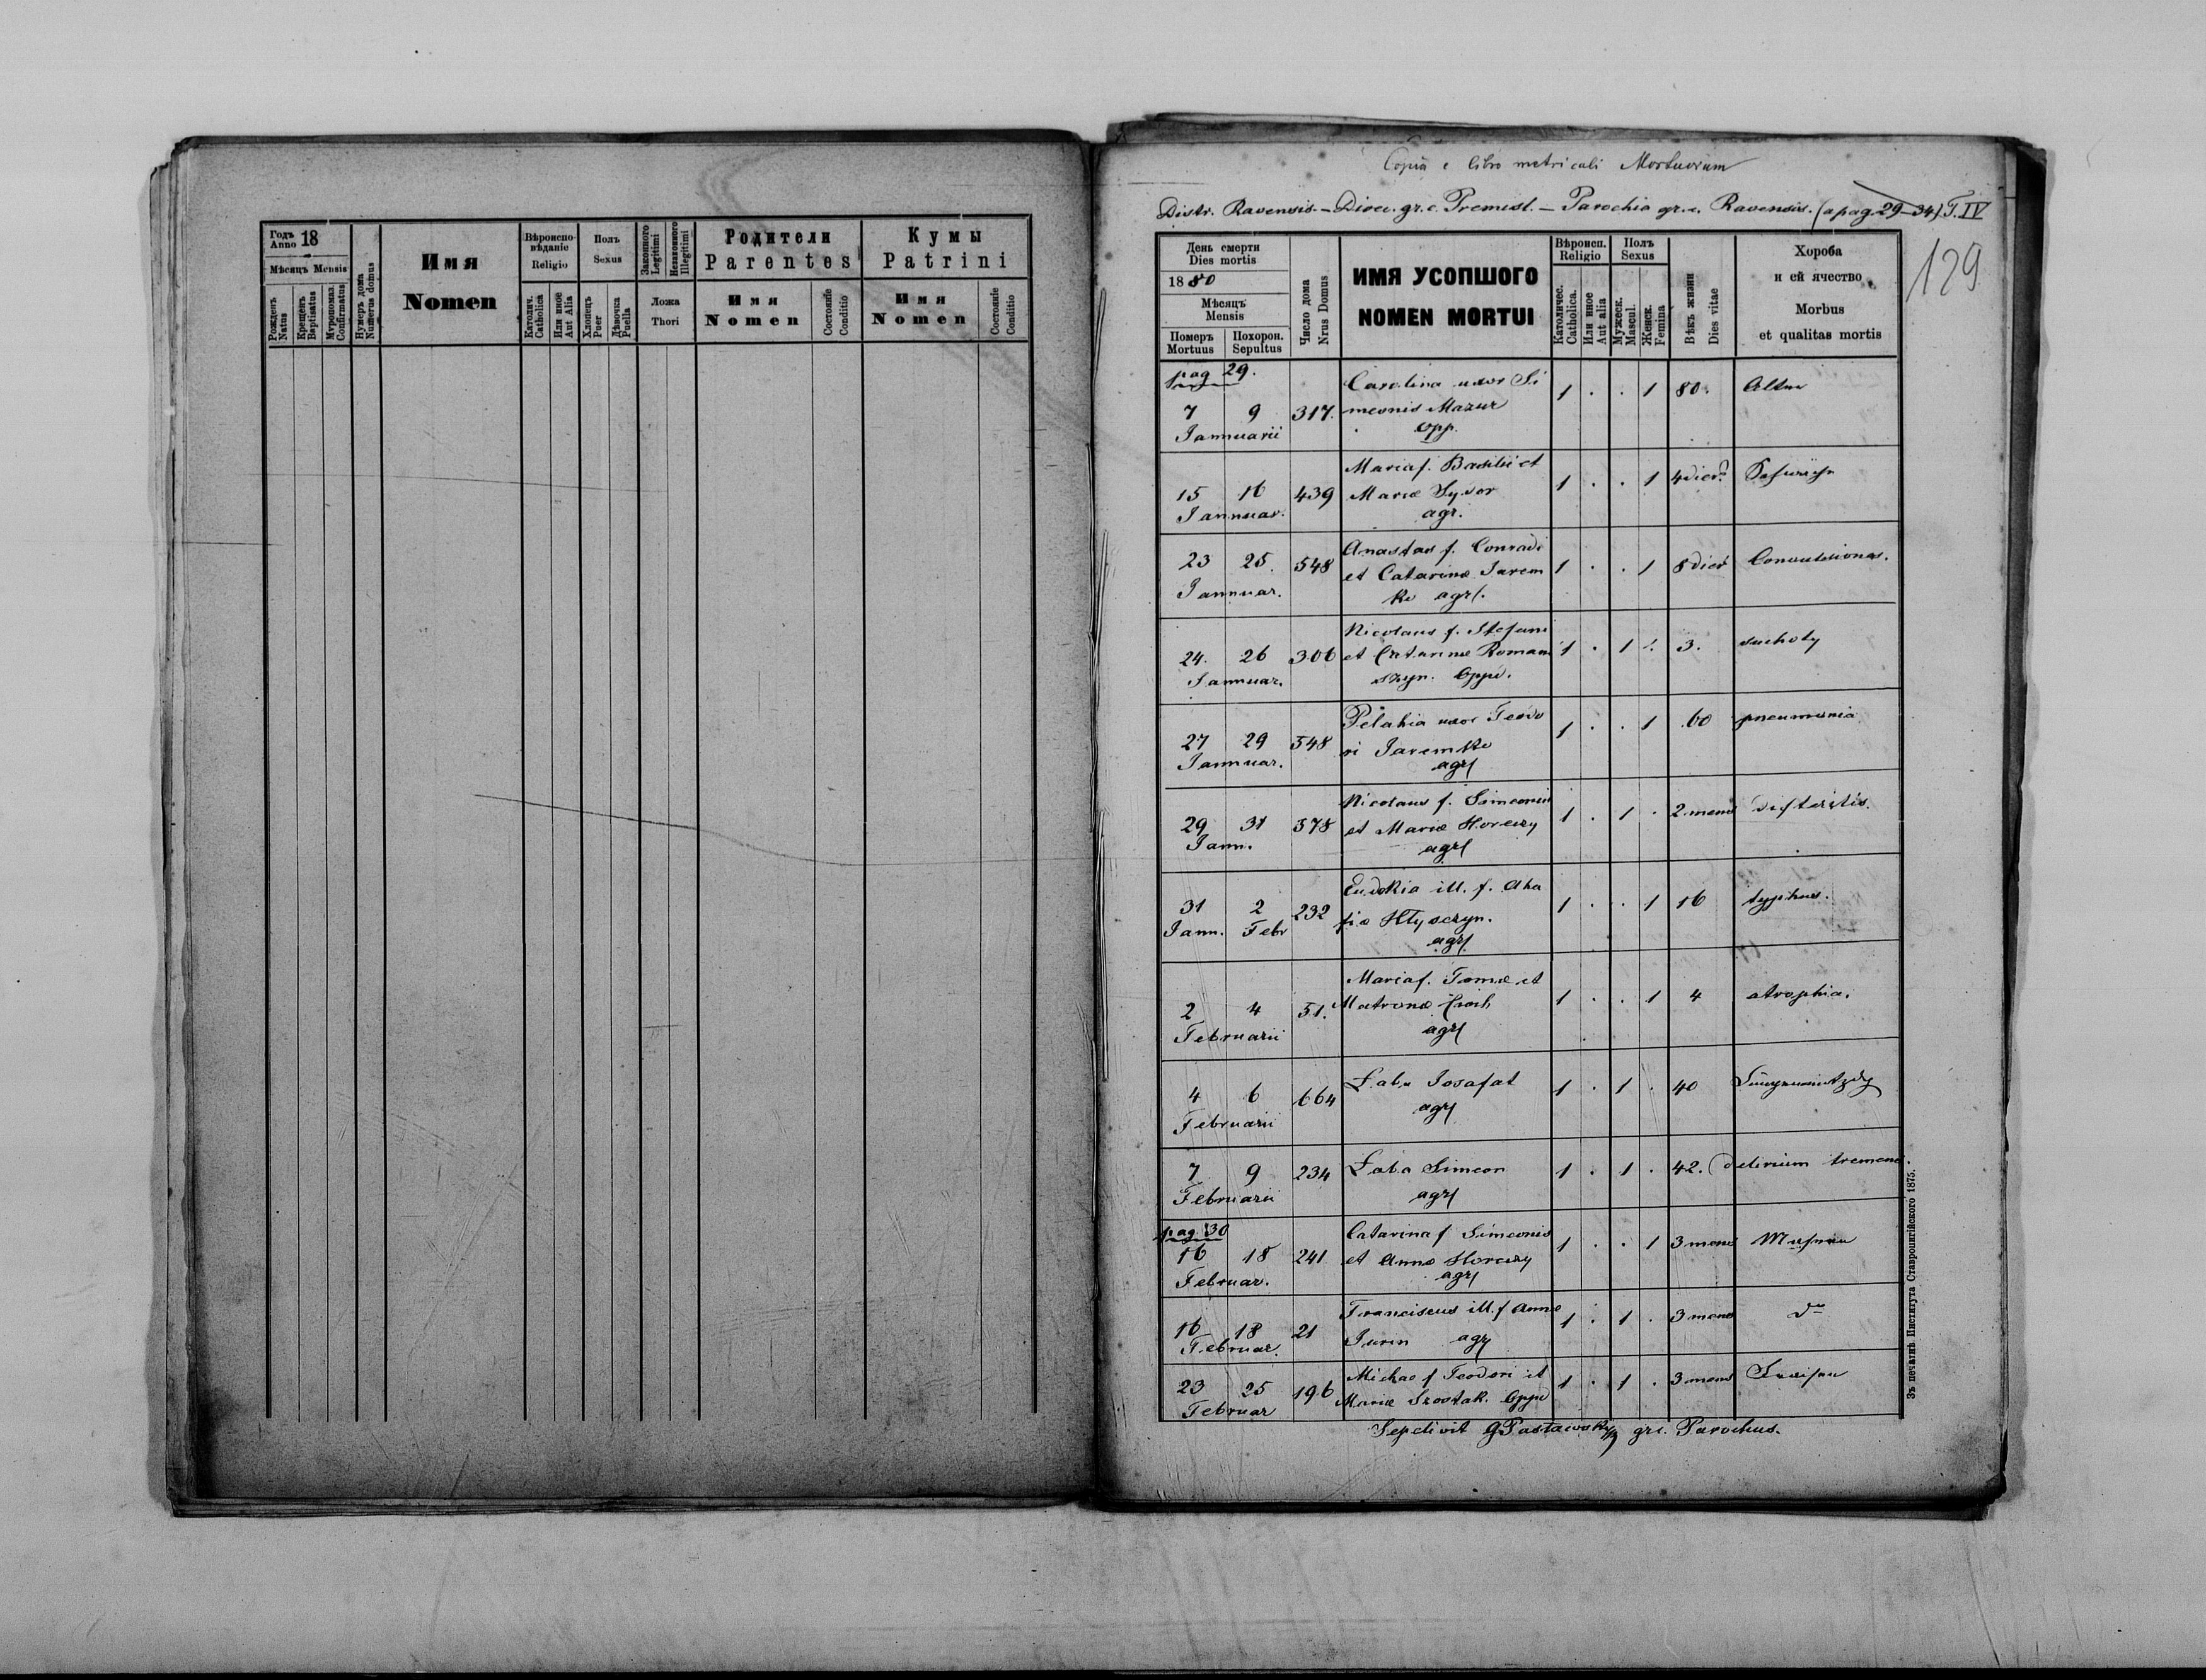 Годъ Anno 18
Мѣсяцъ Mensis
Рожденъ Natus
Крещенъ Baptisatus
Мvропомаз. Confirmatus
Нумеръ дома Numerus domus
Имя
Nomen
Вѣроиспо-
вѣданіе
Religio
Католич. Catholica
Или иное Aut Alia
Полъ
Sexus
Хлопецъ Puer
Дѣвочка Puella
Законного Legitimi
Незаконного Illegitimi
Ложа
Thori
Родители
Parentes
Имя
Nomen
Состояніе Conditio
Кумы
Patrini
Имя
Nomen
Состояніе Conditio
Copia e libro metricali Mortuorum
Distr. Ravensis. – Dioec. gr. c. Premisl. – Parochia gr. c. Ravensis. (a pag. 29–34) T. IV
129
День смерти
Dies mortis
1880
Мѣсяцъ
Mensis
Померъ Mortuus
Похорон. Sepultus
Число дома Nrus Domus
ИМЯ УСОПШОГО
NOMEN MORTUI
Вѣроисп.
Religio
Католичес. Catholica.
Или иное Aut alia
Полъ
Sexus
Мужеск. Mascul.
Женск. Femina
Вѣкъ жизни
Dies vitae
Хороба
и ей ячество
Morbus
et qualitas mortis
pag 29.
Carolina uxor Si
7 9 317. meonis Mazur 1 . . 1 80.
Jannuarii opp.
Maria f. Basilii et
15 16 439 Mariæ Sydor 1 . . 1 4 dier.
Jannuar. agr.
Anastas f. Conradi
23 25. 548 et Catarinæ Jarem 1 . . 1 8 dier Convulsiones.
Jannuar. ko agr.
Nicolaus f. Stefani
24. 26 306 et Catarinæ Roman 1 . 1 . 3. suchoty
Jannuar. szyn. Oppid.
Pelahia uxor Teodo
27 29 548 ri Jaremko 1 . . 1 60 pneumonia
Jannuar. agr
Nicolaus f. Simeonis
29 31 378 et Mariæ Horeczy 1 . 1 . 2 mens difteritis.
Jann. agr
Eudokia ill. f. Aha
31 2 232 fiæ Hlyszczyn. 1 . . 1 16 typhus.
Jann. Febr agr
Maria f. Tomæ et
2 4 51. Matronæ 1 . . 1 4 atrophia.
Februarii agr
4 6 664 Łaba Josafat 1 . 1 . 40
Februarii agr
7 9 234 Łaba Simeon 1 . 1 . 42. delirium tremens.
Februarii agr
pag 30
Catarina f Simeonis
16 18 241 et Annæ Horeczy 1 . . 1 3 mens
Februar. agr
Franciscus ill. f Annæ
16 18 21 1 . 1 . 3 mens dto
Februar. agr
Michael f Teodori et
23 25 196 Mariæ Szostak. Oppid 1 . 1 . 3 mens
Februar
Sepelivit gr. c. Parochus.
Зъ печатнѣ Института Ставропигійского 1875.